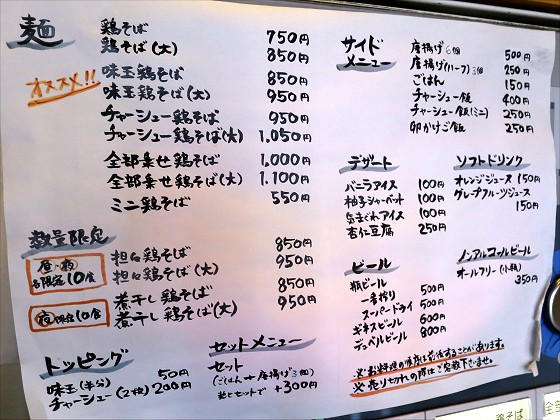 麺
鶏そば 750円
鶏そば(大) 850円
オススメ!!
味玉鶏そば 850円
味玉鶏そば(大) 950円
チャーシュー鶏そば 950円
チャーシュー鶏そば(大) 1,050円
全部乗せ鶏そば 1,000円
全部乗せ鶏そば(大) 1,100円
ミニ鶏そば 550円
数量限定
昼・夜
各限定10食
担々鶏そば 850円
担々鶏そば(大) 950円
夜限定10食
煮干し鶏そば 850円
煮干し鶏そば(大) 950円
トッピング
味玉(半分) 50円
チャーシュー(2枚) 200円
セットメニュー
セット
(ごはん+唐揚げ3個)
+300円
サイド
メニュー
唐揚げ6個 500円
唐揚げ(ハーフ)3個 250円
ごはん 150円
チャーシュー飯 400円
チャーシュー飯(ミニ) 250円
卵かけご飯 250円
デザート
バニラアイス 100円
柚子シャーベット 100円
気まぐれアイス 100円
杏仁豆腐 250円
ソフトドリンク
オレンジジュース 150円
グレープフルーツジュース
150円
ビール
瓶ビール
一番搾り 500円
スーパードライ 500円
ギネスビール 600円
デュベルビール 800円
ノンアルコールビール
オールフリー(小瓶)
350円
※お料理の順序は前後することがあります。
※売り切れの際はご容赦下さいませ。
鶏そば